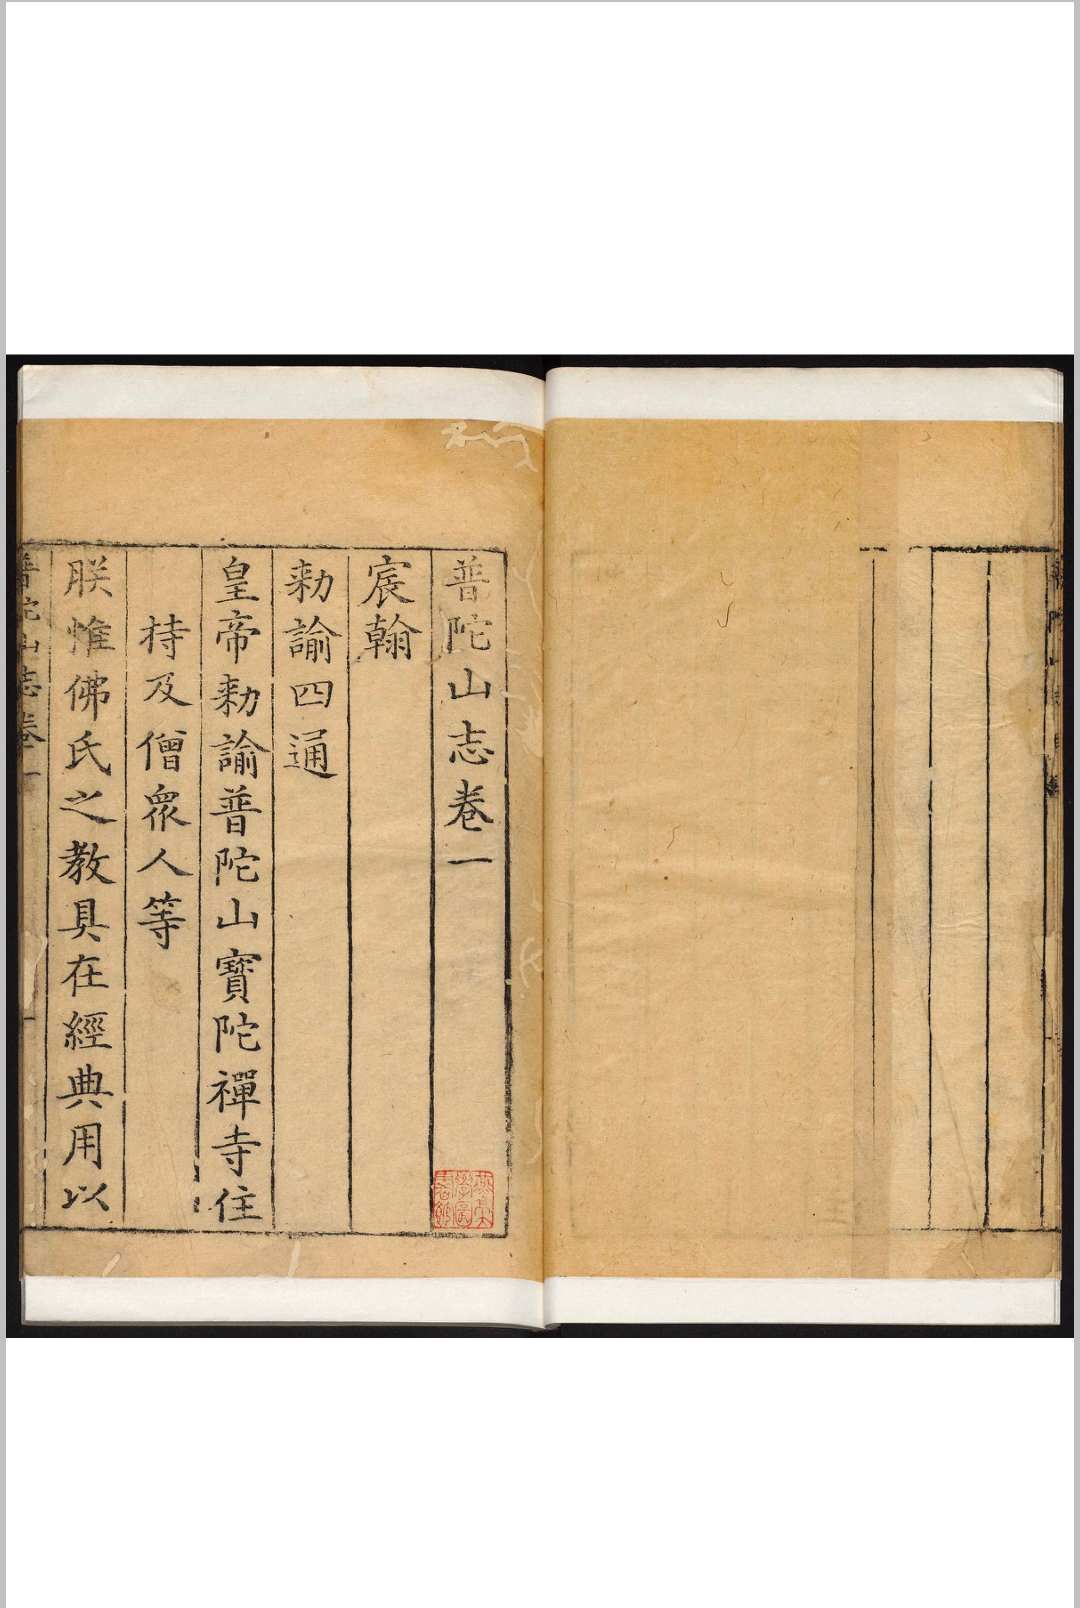 普陀山志卷一
宸翰
勑諭四通
皇帝勑諭普陀山寶陀禪寺住
持及僧衆人等
朕惟佛氏之教具在經典用以
普陀山志卷一